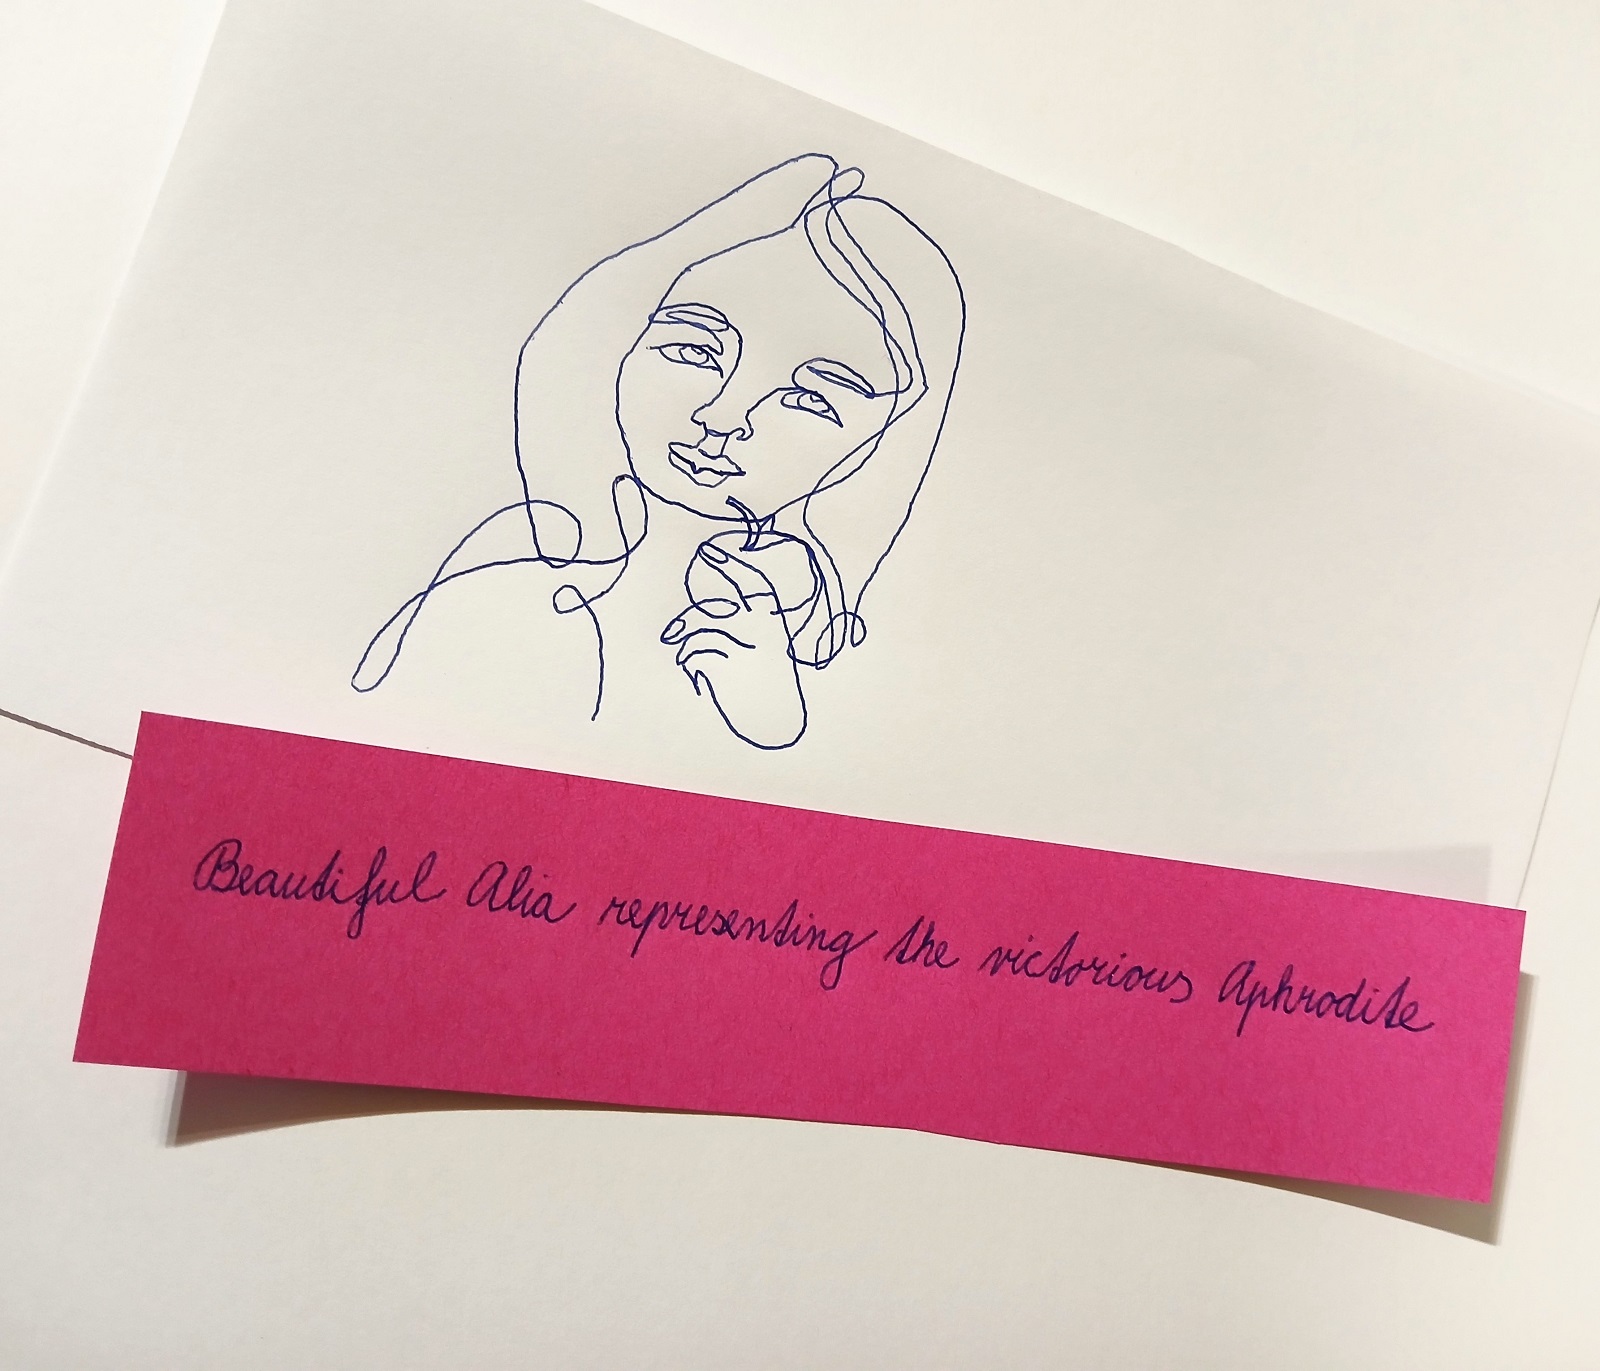 Beautiful Alia representing the victorious Aphrodite